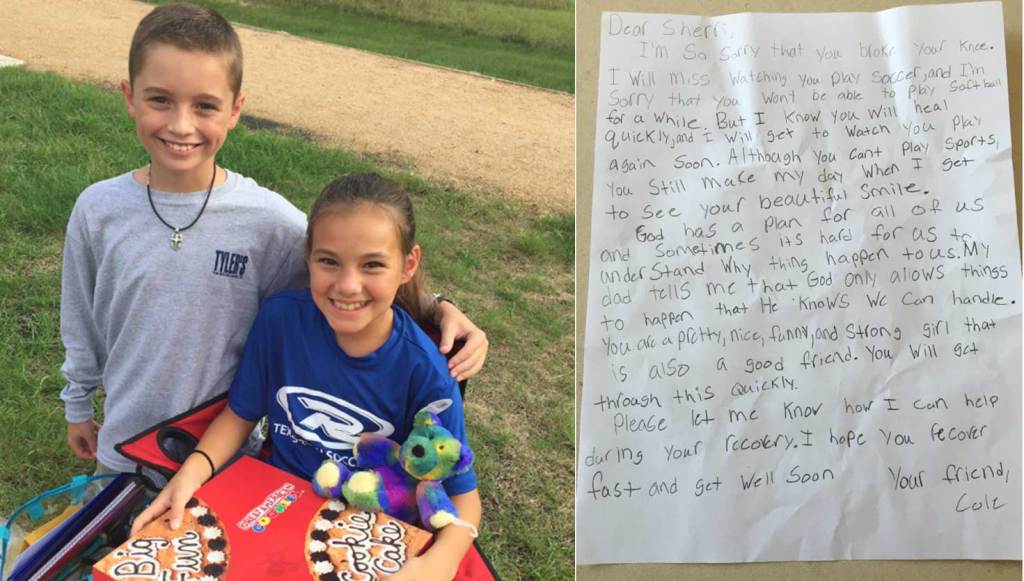 TYLER'S
R
GREAT AMERICAN
COOKIES
Big
Fun
Cookie
Cake
Dear Sherri,
I'm So Sorry that you broke Your Knee.
I Will miss Watching you play Soccer, and I'm
Sorry that you Wont be able to play Softball
for a While. But I know you Will heal
quickly, and i Will get to Watch You Play
again Soon. Although you Cant Play Sports,
you Still make my day When I get
to see your beautiful Smile.
God has a plan for all of us
and Sometimes its hard for us to
under Stand Why thing happen to us. My
dad tells me that God Only allows things
to happen that He Knows We Can handle.
You are a pretty, nice, funny, and Strong girl that
is also a good friend. You Will get
through this Quickly.
Please let me Know how I can help
during Your recovery. I hope you recover
fast and get Well Soon Your friend,
Cole